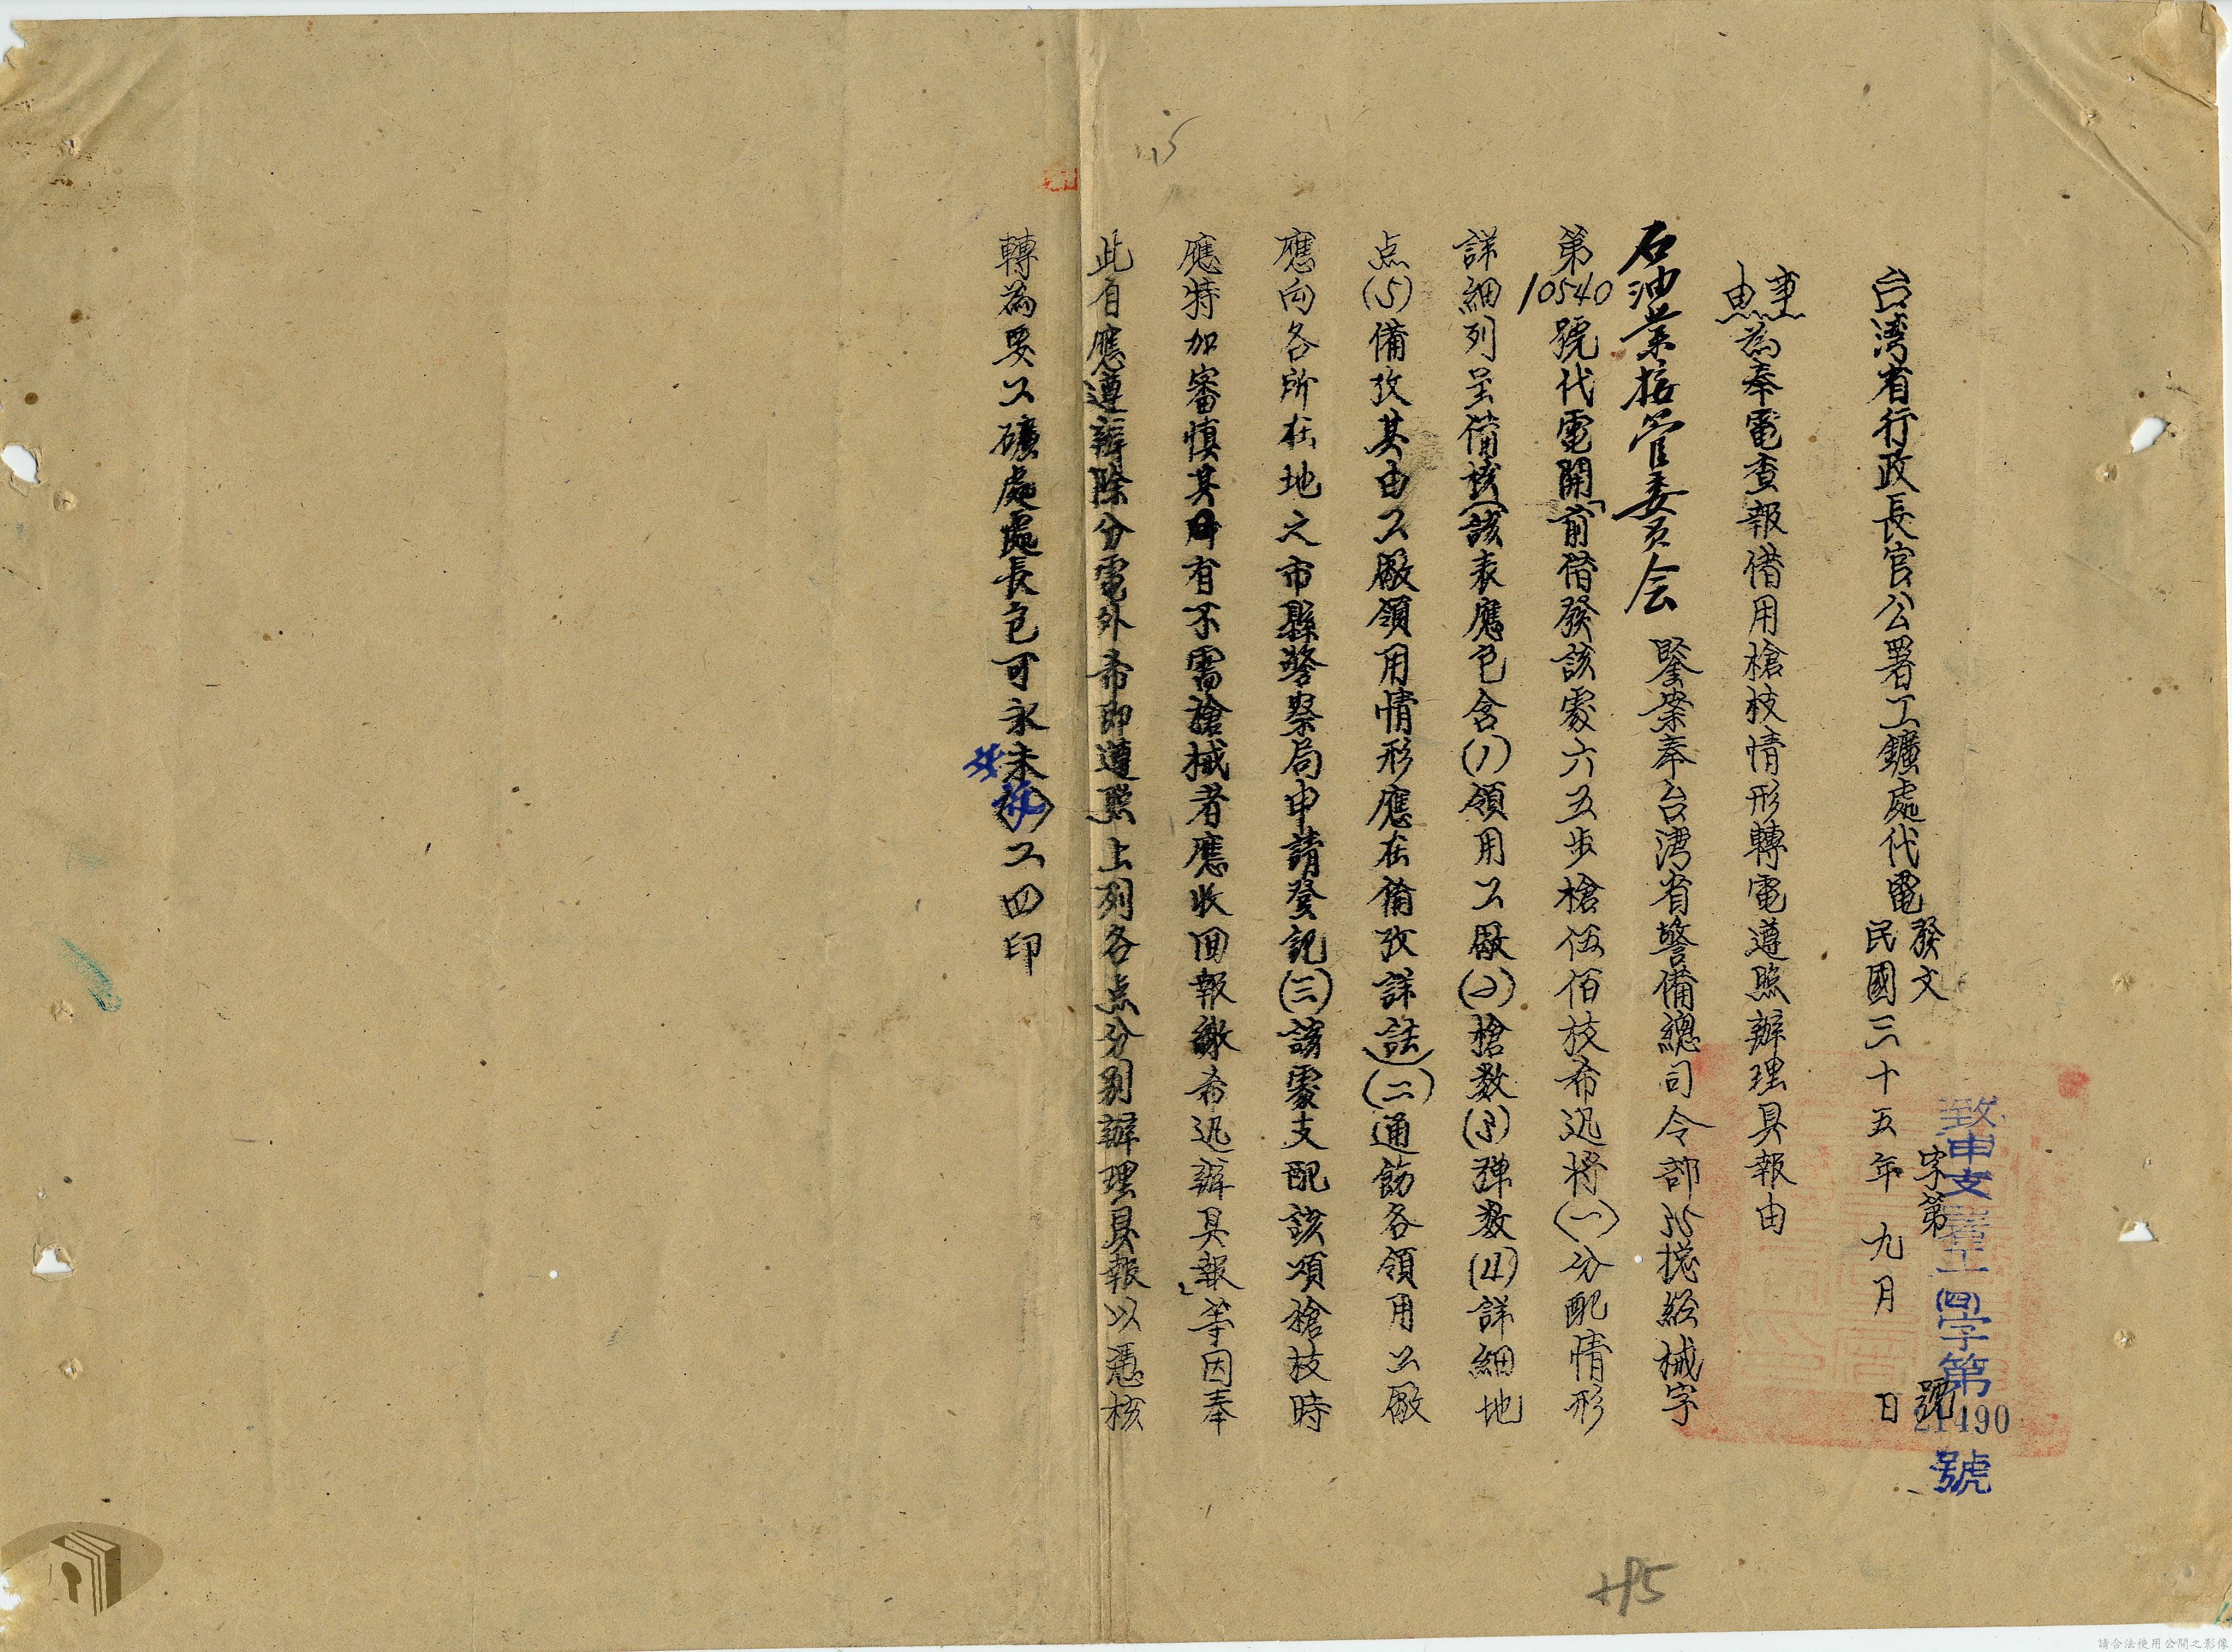 台湾省行政長官公署工鑛處代電
發文
字第
號
民國三十五年九月
日
致申支署工(四)字第21490號
事由為奉電查報借用槍枝情形轉電遵照辦理具報由
石油業接管委員会
鑒案奉台湾省警備總司令部35總経械字
第10540號代電開「前借發該處六五步槍伍佰枝希迅將(一)分配情形
詳細列呈備核(該表應包含(1)領用工廠(2)槍数(3)彈数(4)詳細地
点(5)備攷其由工廠領用情形應在備攷詳註)(二)通飭各領用工廠
應向各所在地之市縣警察局申請登記(三)該處支配該項槍枝時
應特加審慎其有不需槍械者應收回報繳希迅辦具報」等因奉
此自應遵辦除分電外希即遵照上列各点分别辦理具報以憑核
轉為要工礦處處長包可永未工四印
請合法使用公開之影像